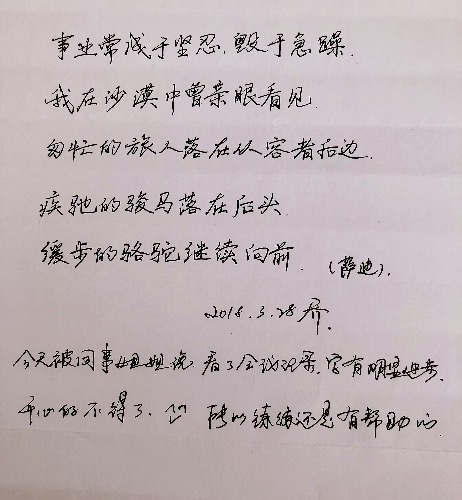 事业常成于坚忍,毁于急躁.
我在沙漠中曾亲眼看见
匆忙的旅人落在从容者后边.
疾驰的骏马落在后头
缓步的骆驼继续向前. (萨迪).
2018.3.28 乔.
今天被同事姐姐说 看了会议记录,字有明显进步.
开心的不得了. 所以练练还是有帮助的